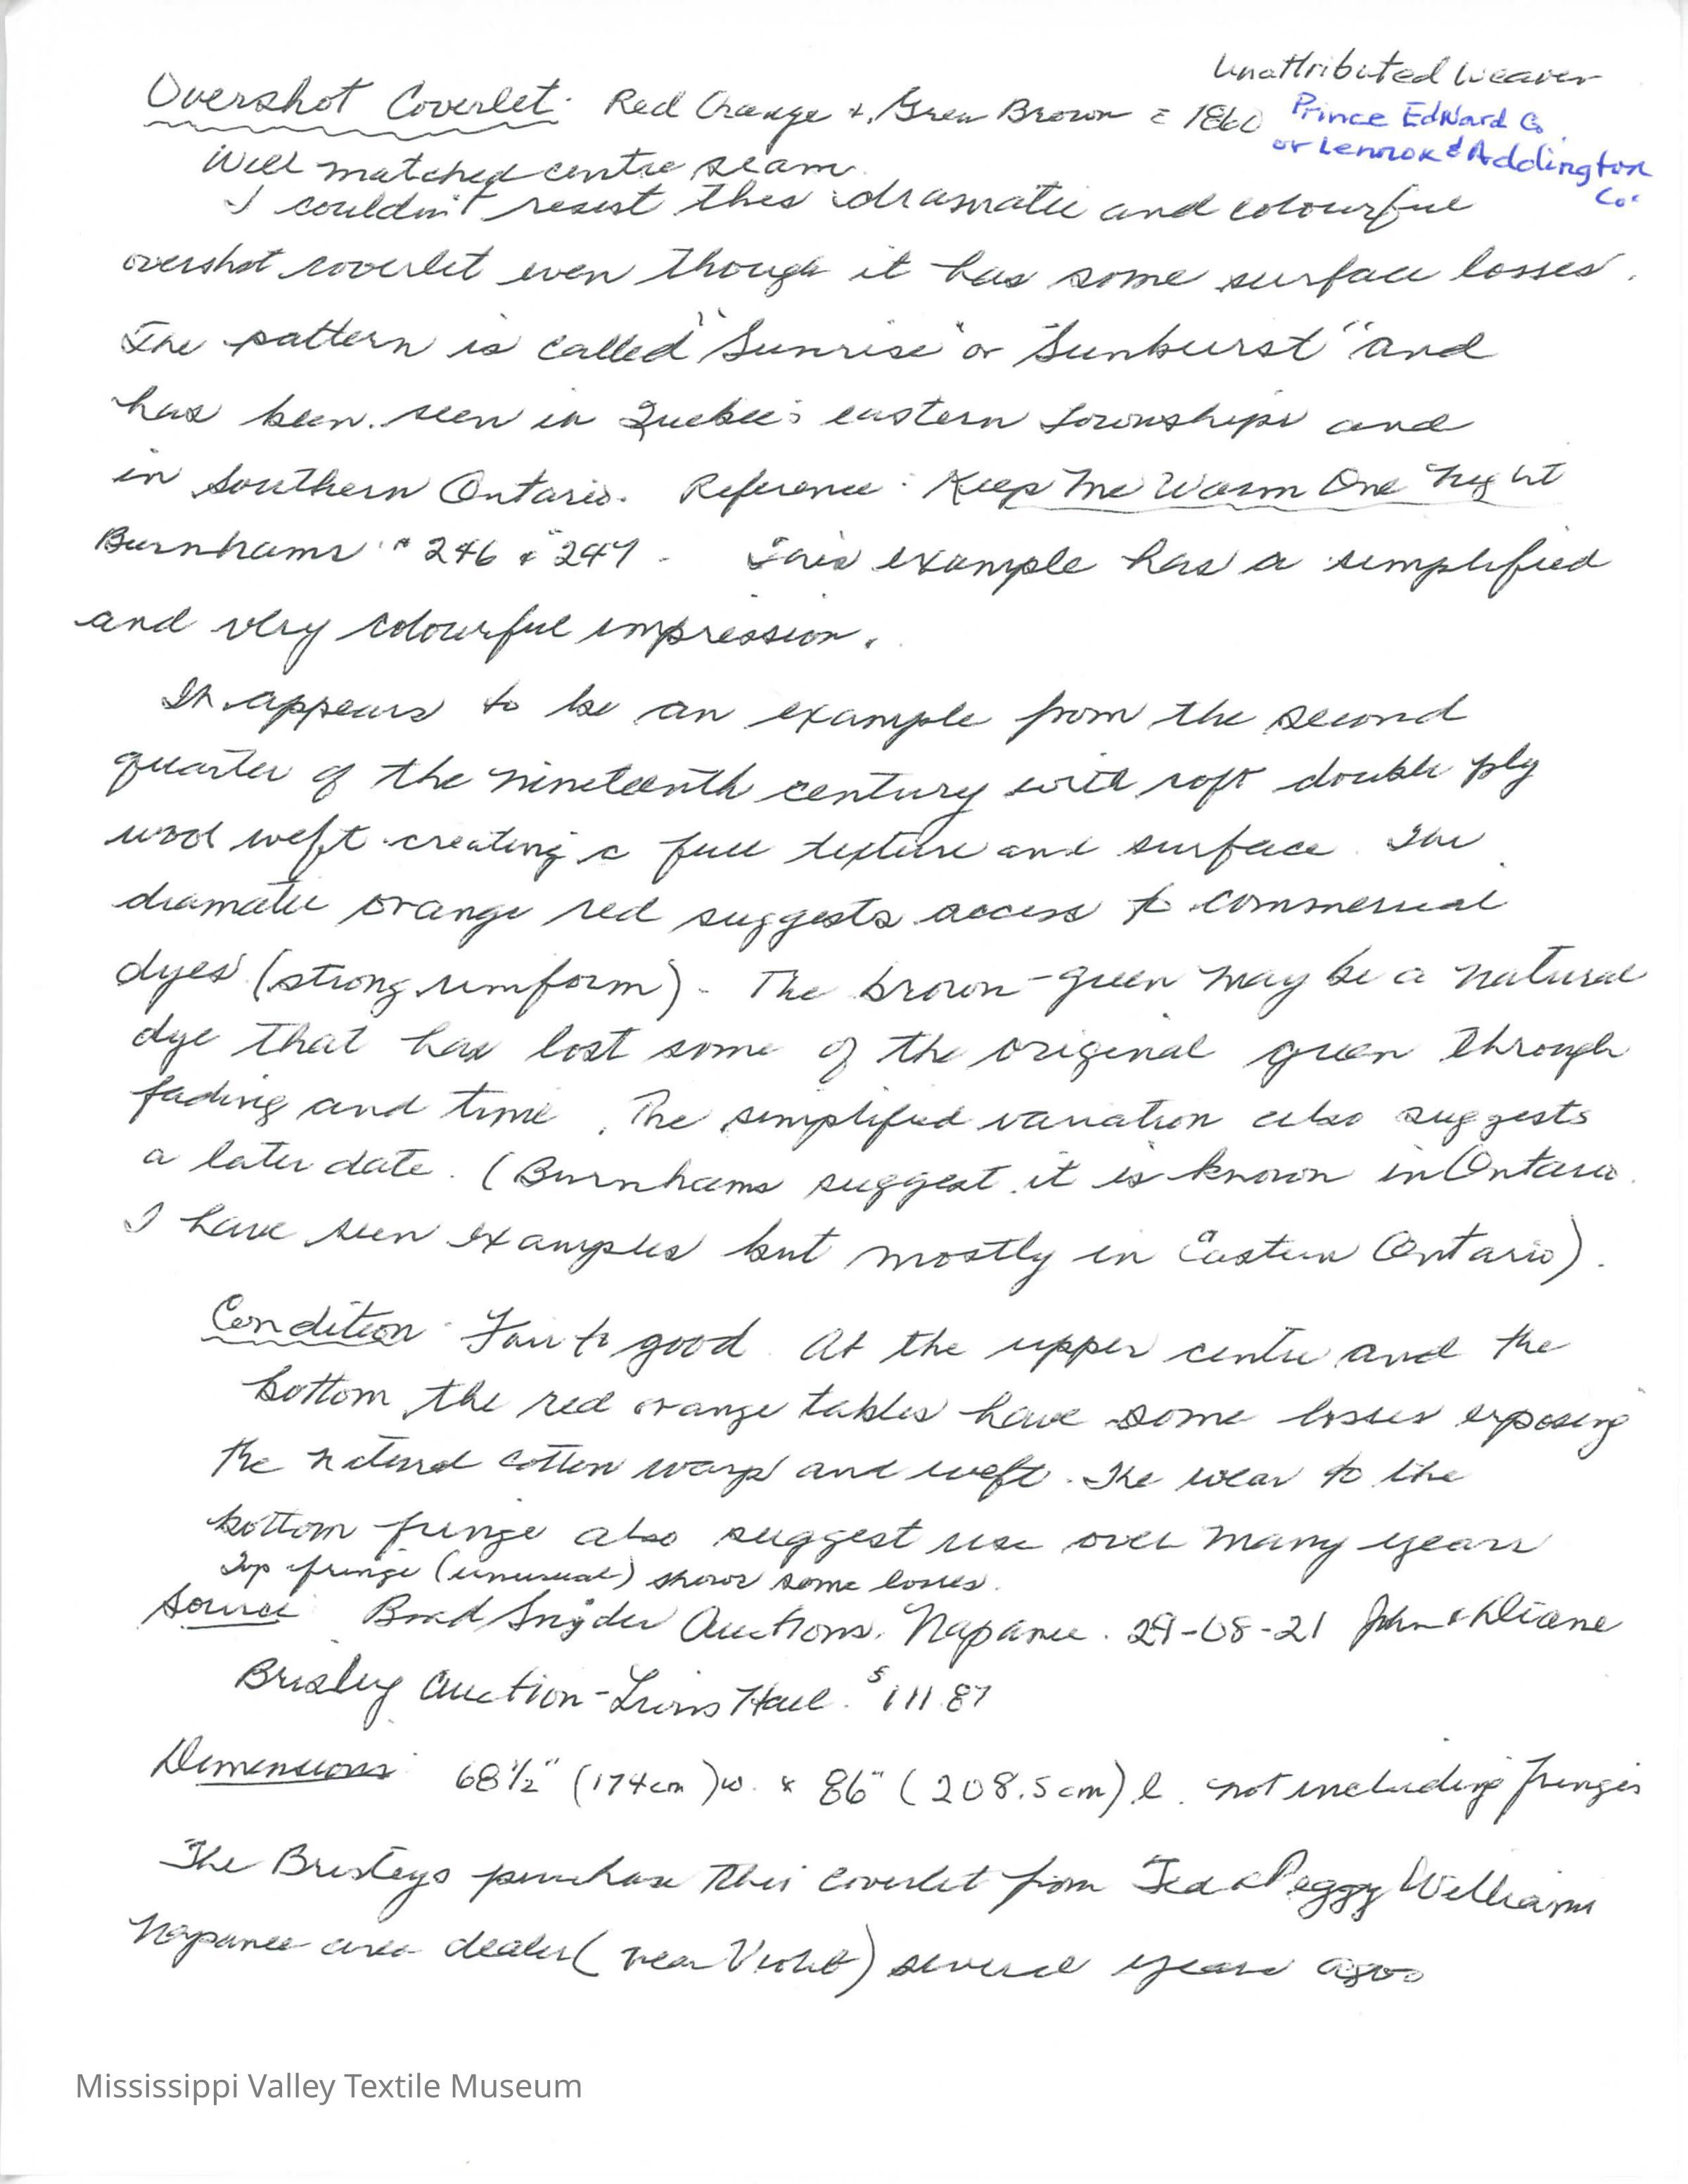 Unattributed Weaver
Overshot Coverlet: Red Orange +. Green Brown = 1860
Prince Edward Co.
or Lennox & Addington
Co.
Well matched centre seam.
I couldn't resist this dramatic and colourful
overshot coverlet even though it has some surface losses.
The pattern is called "Sunrise" or "Sunburst" and
has been seen in Quebec's eastern townships and
in Southern Ontario. Reference: Keep Me Warm One Night
Burnhams #246 & 247. This example has a simplified
and very colourful impression.
It appears to be an example from the second
quarter of the nineteenth century with soft double ply
wool weft creating a full texture and surface. The
dramatic orange red suggests access to commercial
dyes (strong uniform). The brown-green may be a natural
dye that has lost some of the original green through
fading and time. The simplified variation also suggests
a later date. (Burnhams suggest it is known in Ontario.
I have seen examples but mostly in Eastern Ontario).
Condition Fair to good. At the upper centre and the
bottom the red orange tables have some losses exposing
the natural cotton warp and weft. The wear to the
bottom fringe also suggest use over many years
Top fringe (unusual) shows some losses.
Source Brad Snyder Auctions, Napanee. 29-08-21 John & Diane
Brisley Auction - Lions Hall. $111.87
Dimensions 68 1/2" (174cm) w. x 86" (208.5cm) l. not including fringes
The Brisleys purchase this coverlet from Ted & Peggy Williams
Napanee area dealer (near Violet) several years ago.
Mississippi Valley Textile Museum